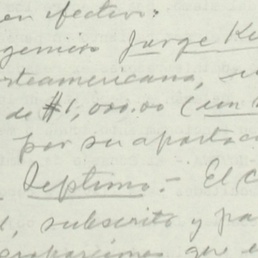 en efectivo.
Jorge
norteamericano,
de $1,000.00 (un
por su aportac
Septimo.- El c
, subscrito y pa
que